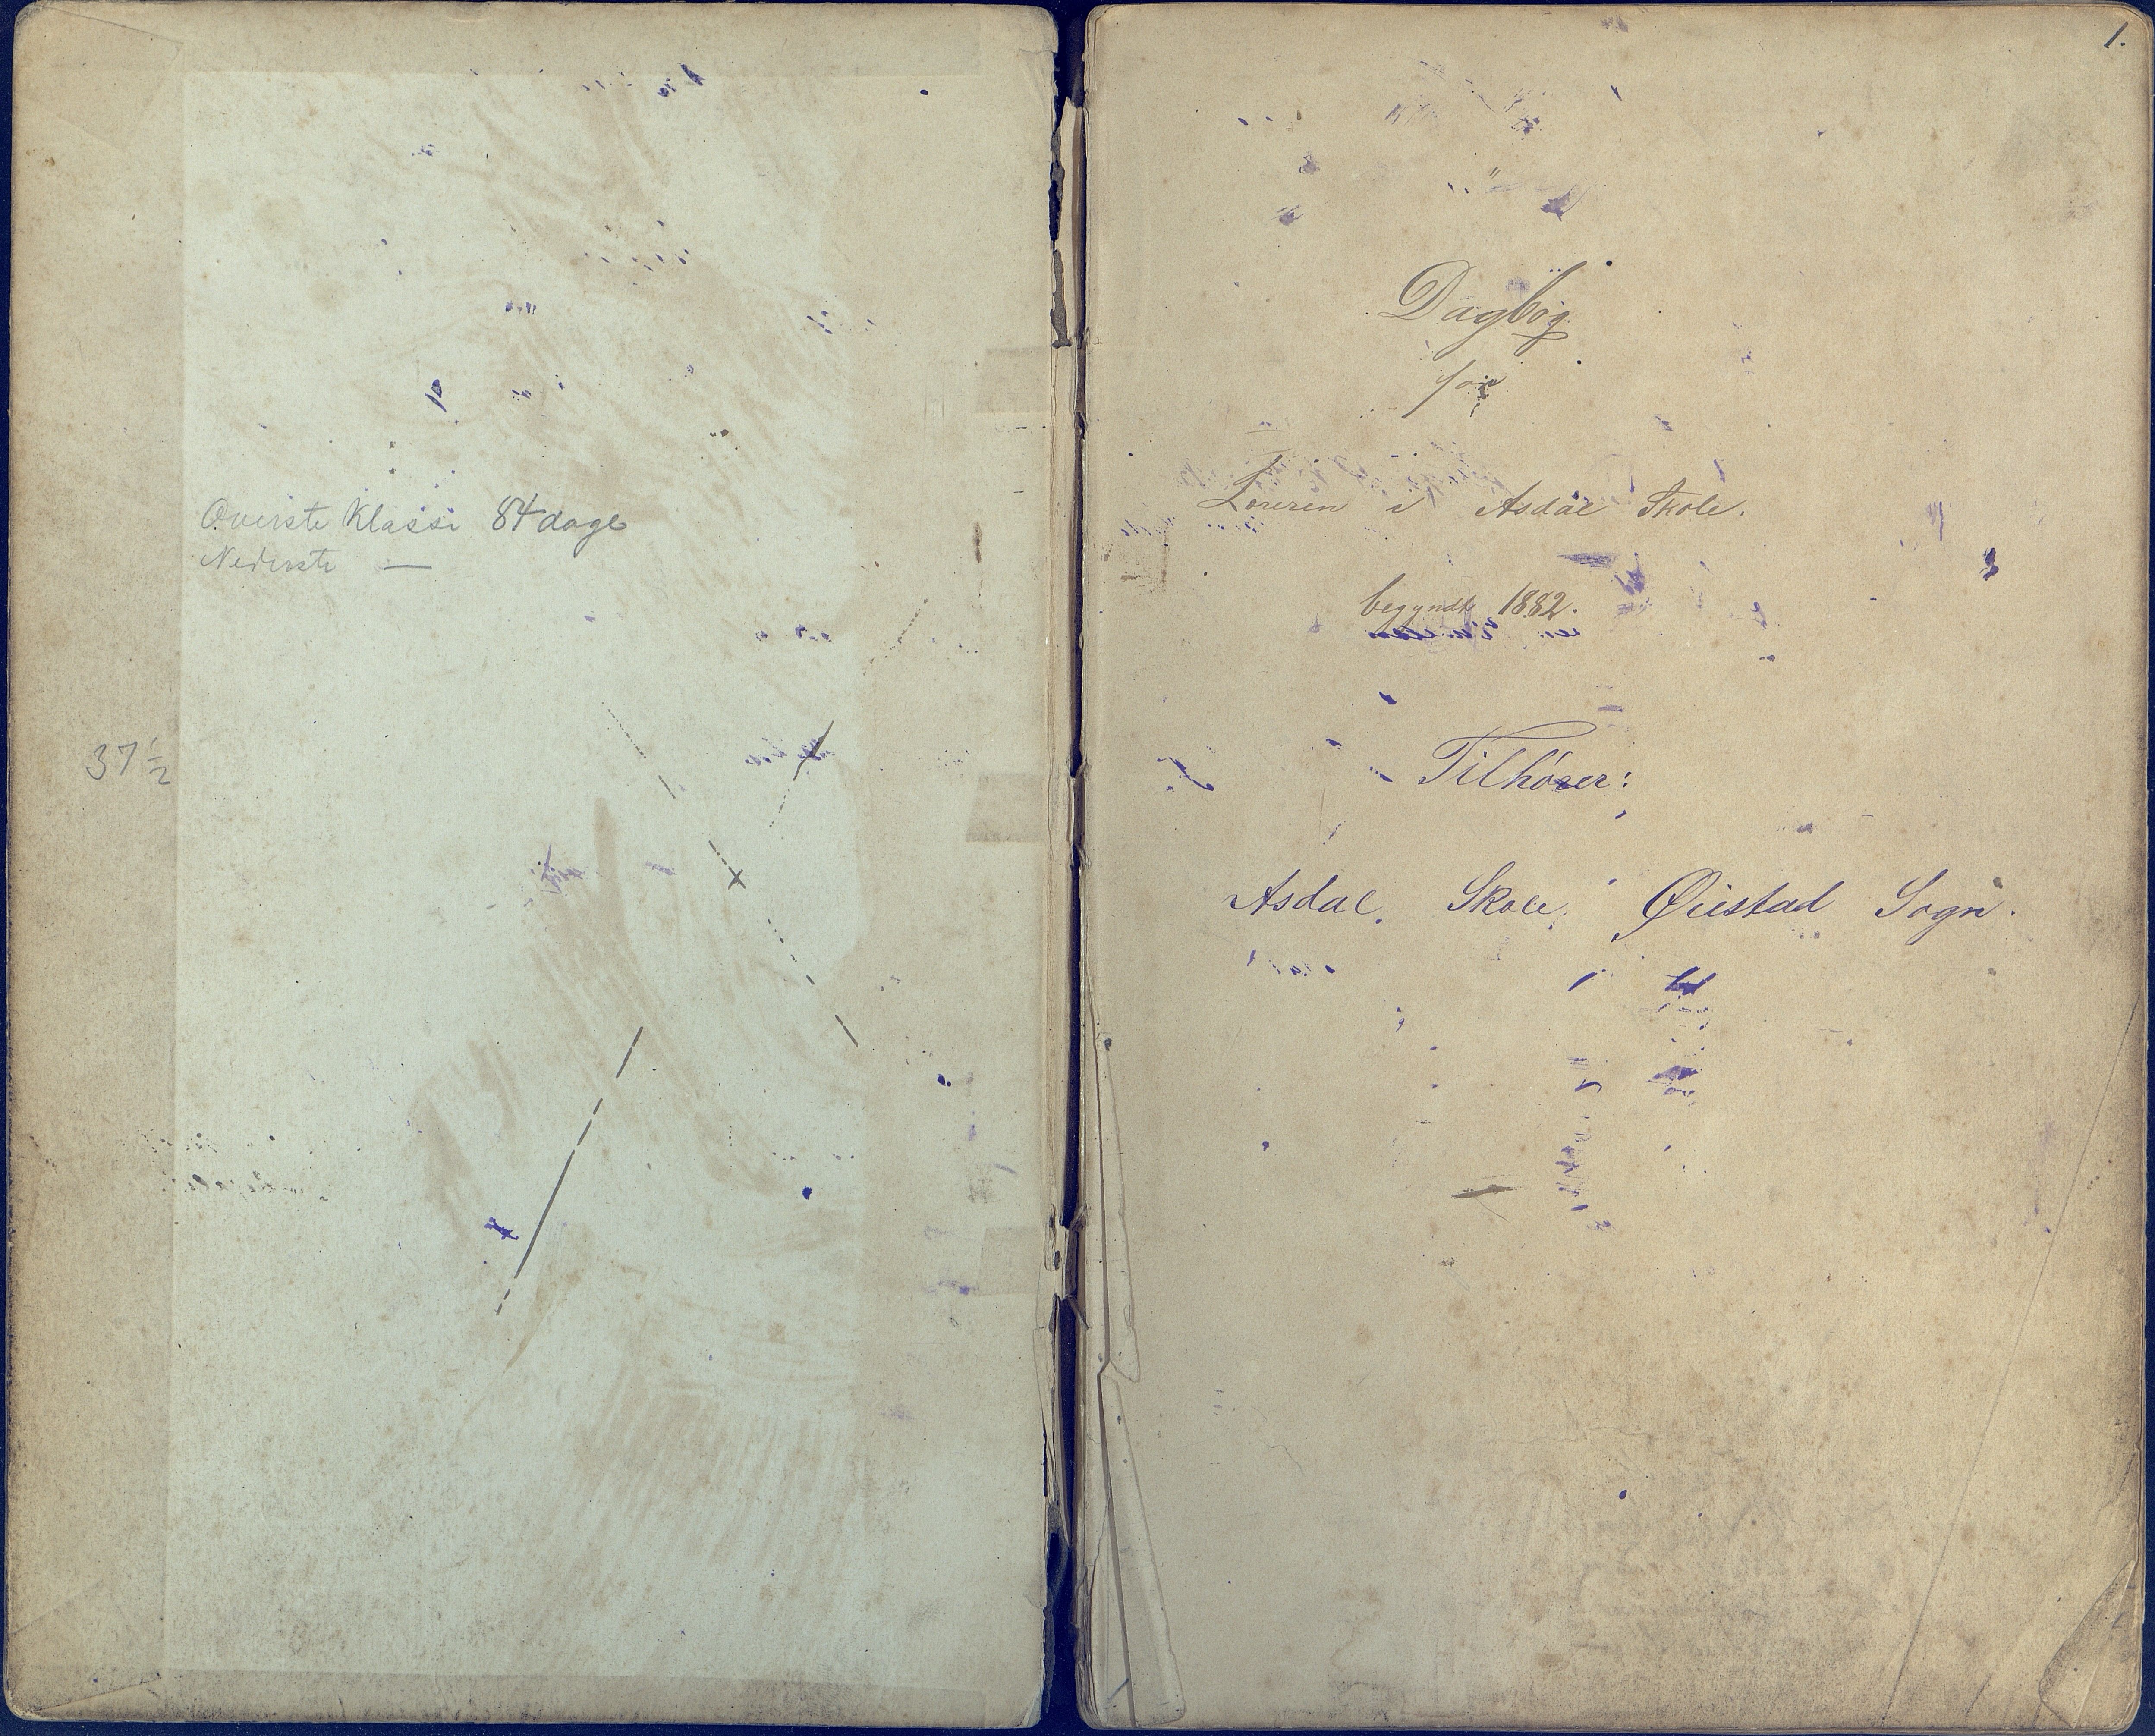 Øverste Klasse 84 dage
Nederste —
37 1/2
1.
Dagbog
for
Læreren i Asdal Skole.
begyndt 1882.
Tilhører:
Asdal Skole, Øiestad Sogn.